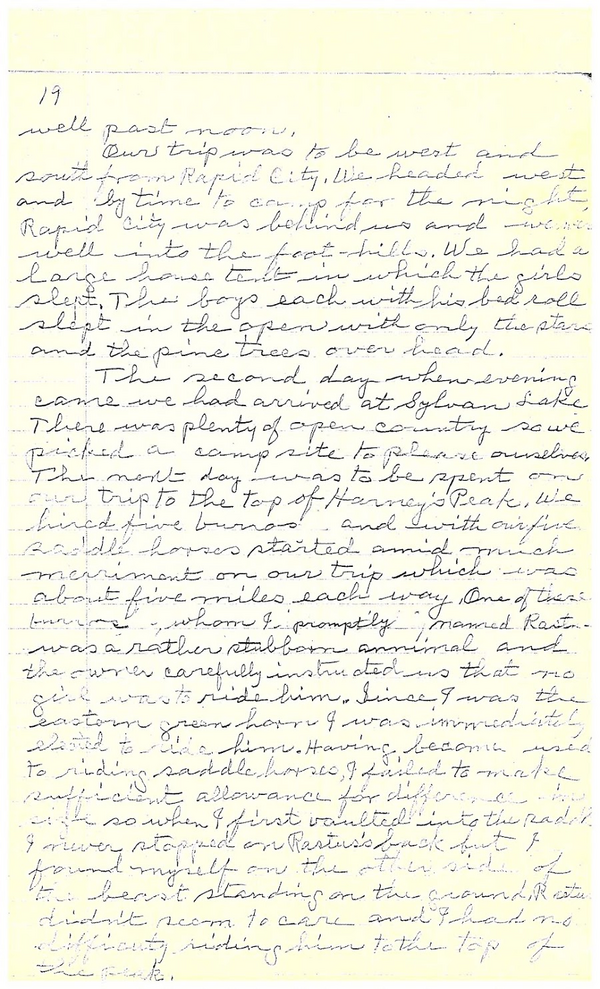 19
well past noon.
Our trip was to be west and
south from Rapid City. We headed west
and by time to camp for the night,
Rapid City was behind us and we were
well into the foot-hills. We had a
large house tent in which the girls
slept. The boys each with his bed roll
slept in the open with only the stars
and the pine trees over head.
The second day when evening
came we had arrived at Sylvan Lake
There was plenty of open country so we
picked a camp site to please ourselves.
The next day was to be spent on
our trip to the top of Harney's Peak. We
hired five burros and with our five
saddle horses started amid much
merriment on our trip which was
about five miles each way. One of these
burros, whom I promptly, named Rastus
was a rather stubborn annimal and
the owner carefully instructed us that no
girl was to ride him. Since I was the
eastern green horn I was immediately
elected to ride him. Having become used
to riding saddle horses, I failed to make
sufficient allowance for difference in
size so when I first vaulted into the saddle
I never stopped on Rastus's back but I
found myself on the other side of
the beast standing on the ground. Rastus
didn't seem to care and I had no
difficuty riding him to the top of
the peak.